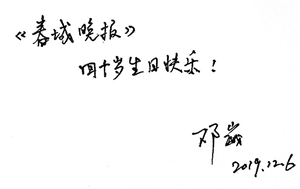 《春城晚报》
四十岁生日快乐！
邓崴
2019.12.6